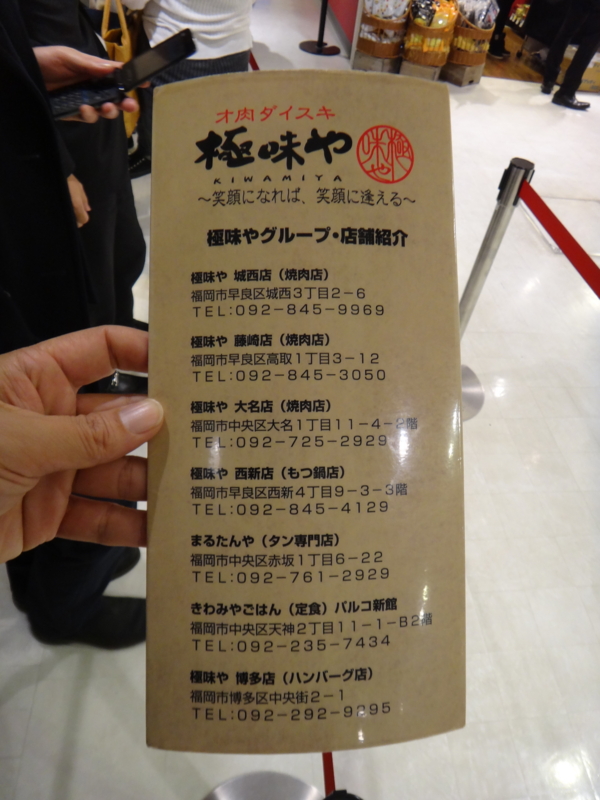 オ肉ダイスキ
極味や
極味や
KIWAMIYA
〜笑顔になれば、笑顔に逢える〜
極味やグループ・店舗紹介
極味や 城西店（焼肉店）
福岡市早良区城西3丁目2−6
TEL:092−845−9969
極味や 藤崎店（焼肉店）
福岡市早良区高取1丁目3−12
TEL:092−845−3050
極味や 大名店（焼肉店）
福岡市中央区大名1丁目11−4−2階
TEL:092−725−2929
極味や 西新店（もつ鍋店）
福岡市早良区西新4丁目9−3−3階
TEL:092−845−4129
まるたんや（タン専門店）
福岡市中央区赤坂1丁目6−22
TEL:092−761−2929
きわみやごはん（定食）パルコ新館
福岡市中央区天神2丁目11−1−B2階
TEL:092−235−7434
極味や 博多店（ハンバーグ店）
福岡市博多区中央街2−1
TEL:092−292−9295